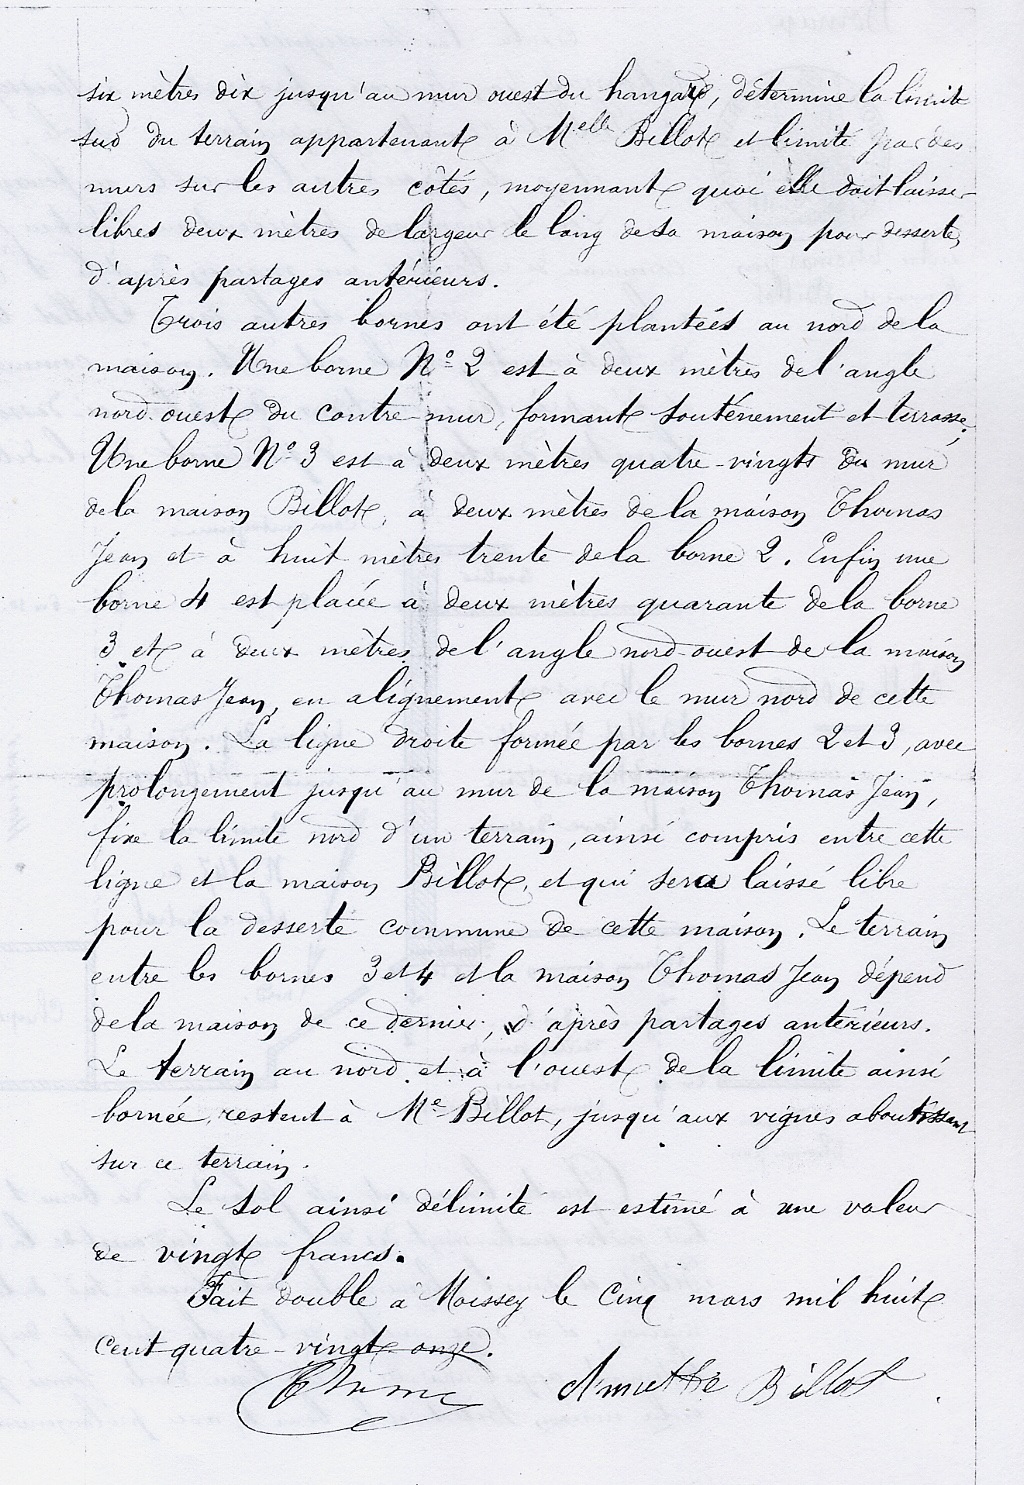 six mètres dix jusqu'au mur ouest du hangar, détermine la limite
sud du terrain appartenant à Melle Billot et limité par des
murs sur les autres côtés, moyennant quoi elle doit laisser
libres deux mètres de largeur le long de sa maison pour desserte,
d'après partages antérieurs.
Trois autres bornes ont été plantées au nord de la
maison. Une borne No 2 est à deux mètres de l'angle
nord ouest du contre-mur, formant soutènement et terrasse.
Une borne No 3 est à deux mètres quatre-vingts du mur
de la maison Billot, à deux mètres de la maison Thomas
Jean et à huit mètres trente de la borne 2. Enfin une
borne 4 est placée à deux mètres quarante de la borne
3 et à deux mètres de l'angle nord-ouest de la maison
Thomas Jean, en alignement avec le mur nord de cette
maison. La ligne droite formée par les bornes 2 et 3, avec
prolongement jusqu'au mur de la maison Thomas Jean,
fixe la limite nord d'un terrain, ainsi compris entre cette
ligne et la maison Billot, et qui sera laissé libre
pour la desserte commune de cette maison. Le terrain
entre les bornes 3 et 4 et la maison Thomas Jean dépend
de la maison de ce dernier, d'après partages antérieurs.
Le terrain au nord et à l'ouest de la limite ainsi
bornée, restent à Me Billot, jusqu'aux vignes aboutissant
sur ce terrain.
Le sol ainsi délimité est estimé à une valeur
de vingt francs.
Fait double à Moissey le cinq mars mil huit
cent quatre-vingt onze.
Annette Billot